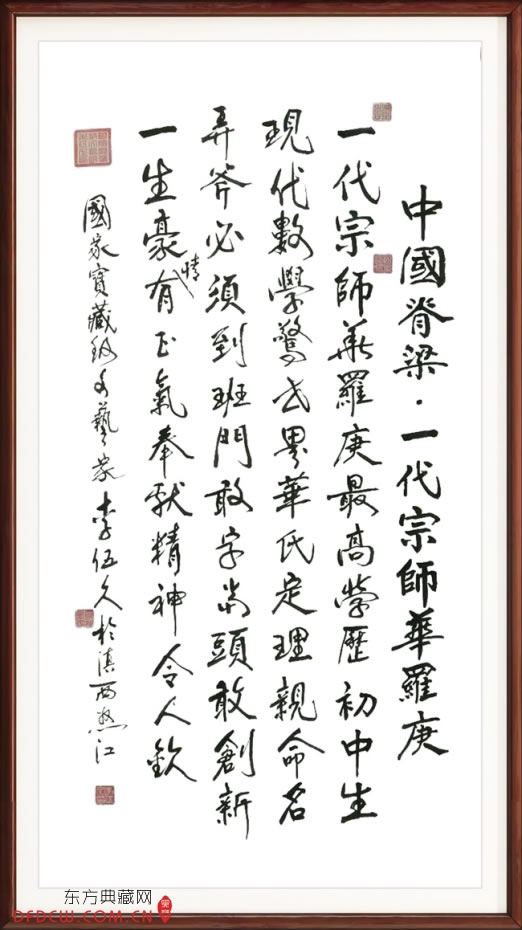 中國脊梁·一代宗師華羅庚
一代宗師華羅庚最高學歷初中生
現代數學驚世界華氏定理親命名
弄斧必須到班門敢字當頭敢創新
一生豪情有正氣奉獻精神令人欽
國家寶藏級文藝家李伍久於滇西怒江
东方典藏网
DFDCW.COM.CN